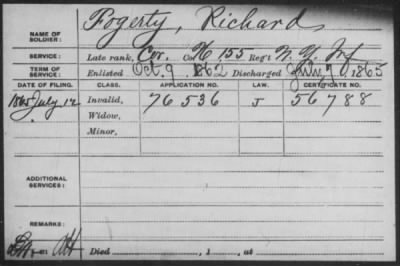 NAME OF SOLDIER: Fogerty, Richard
SERVICE: Late rank, Cor. Co. H, 155 Reg't N.Y. Inf
TERM OF SERVICE: Enlisted Oct. 9 1862 Discharged 1865
DATE OF FILING. CLASS. APPLICATION NO. LAW. CERTIFICATE NO.
1865 July 12 Invalid, 76536 J 56788
Widow,
Minor,
ADDITIONAL SERVICES:
REMARKS:
Died , 1 , at